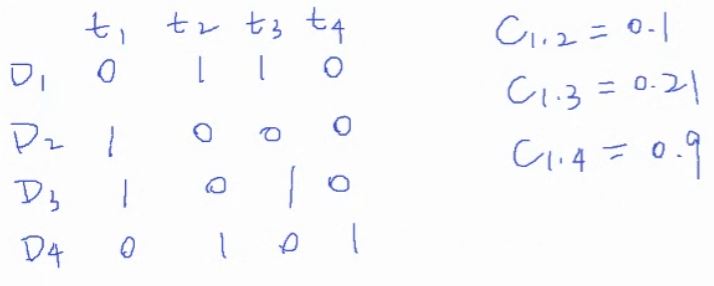 t1 t2 t3 t4
D1 0 1 1 0
D2 1 0 0 0
D3 1 0 1 0
D4 0 1 0 1
C1.2 = 0.1
C1.3 = 0.21
C1.4 = 0.9